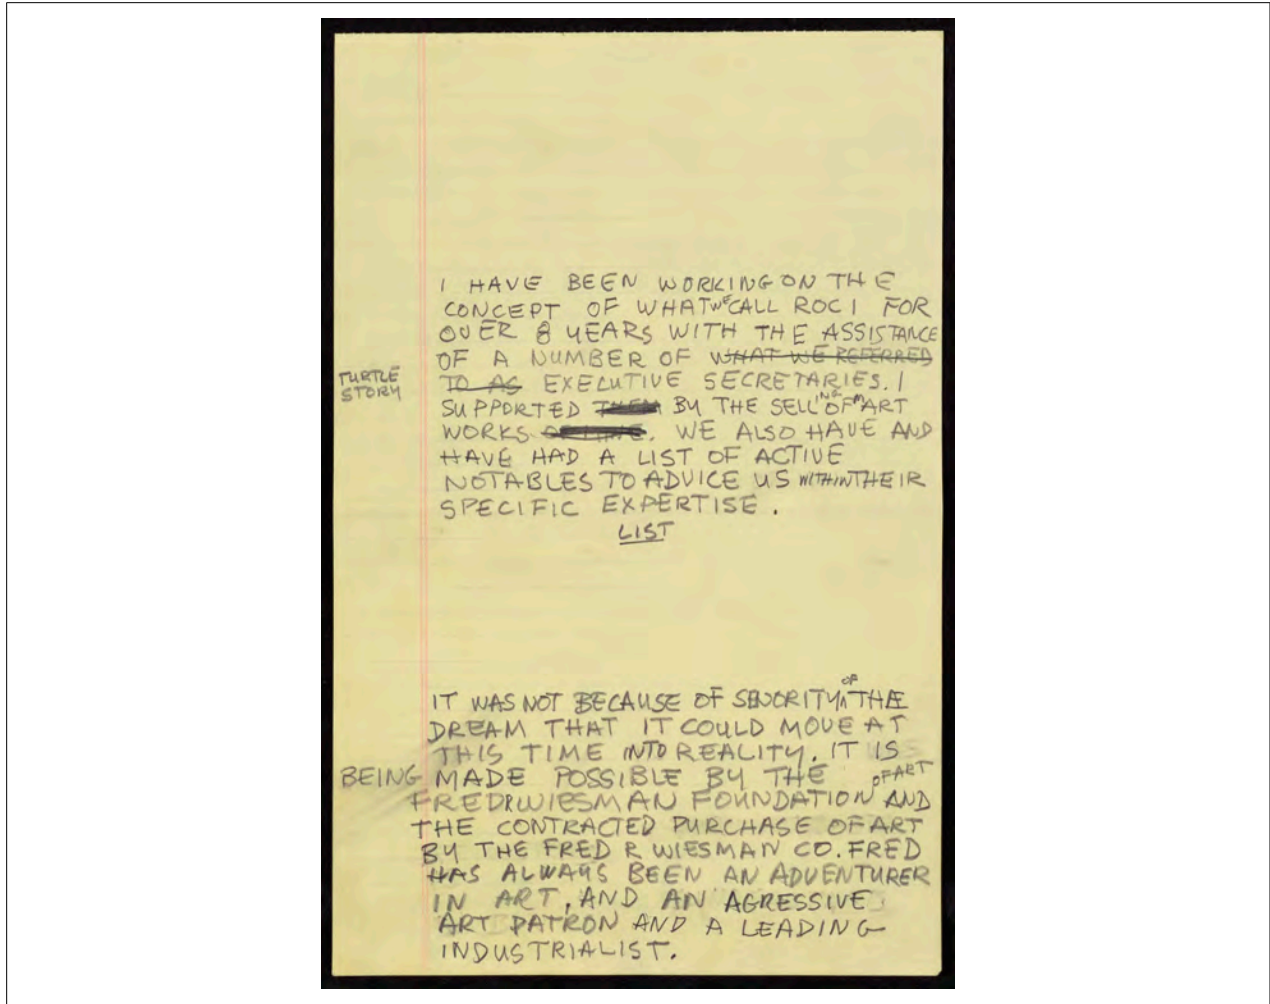 I HAVE BEEN WORKING ON THE
CONCEPT OF WHAT WE CALL ROCI FOR
OVER 8 YEARS WITH THE ASSISTANCE
OF A NUMBER OF WHAT WE REFERRED
TURTLE
STORY
TO AS EXECUTIVE SECRETARIES. I
SUPPORTED THEM BY THE SELLING OF MY ART
WORKS. WE ALSO HAVE AND
HAVE HAD A LIST OF ACTIVE
NOTABLES TO ADVICE US WITHIN THEIR
SPECIFIC EXPERTISE.
LIST
IT WAS NOT BECAUSE OF SENORITY OF THE
DREAM THAT IT COULD MOVE AT
THIS TIME INTO REALITY. IT IS
BEING MADE POSSIBLE BY THE
FRED R WIESMAN FOUNDATION OF ART AND
THE CONTRACTED PURCHASE OF ART
BY THE FRED R WIESMAN CO. FRED
HAS ALWAYS BEEN AN ADVENTURER
IN ART, AND AN AGRESSIVE
ART PATRON AND A LEADING
INDUSTRIALIST.